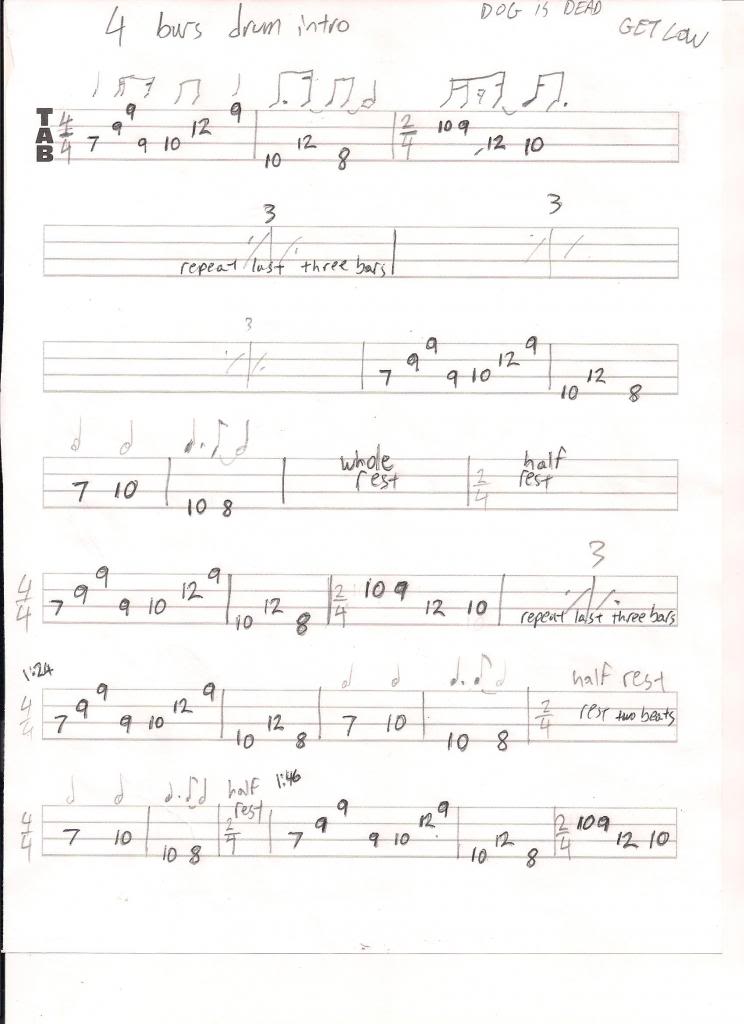 4 bars drum intro
DOG IS DEAD
GET LOW
TAB 4/4 7 9 9 9 10 12 9 10 12 8 2/4 10 9 12 10
3 3
repeat last three bars
3
7 9 9 9 10 12 9 10 12 8
7 10 10 8 whole rest 2/4 half rest
3
4/4 7 9 9 9 10 12 9 10 12 8 2/4 10 9 12 10 repeat last three bars
1:24 half rest
4/4 7 9 9 9 10 12 9 10 12 8 7 10 10 8 2/4 rest two beats
half rest 1:46
4/4 7 10 10 8 2/4 7 9 9 9 10 12 9 10 12 8 2/4 10 9 12 10